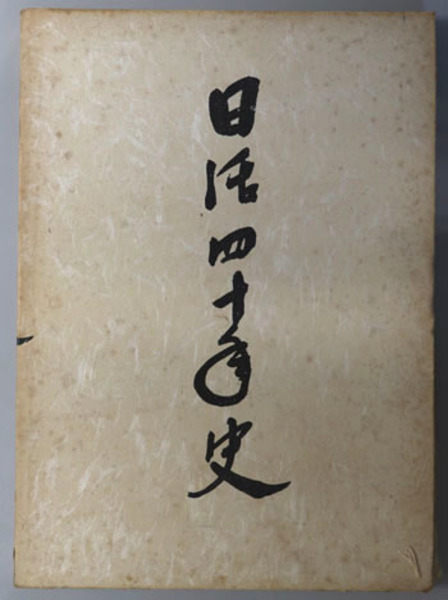 日活四十年史